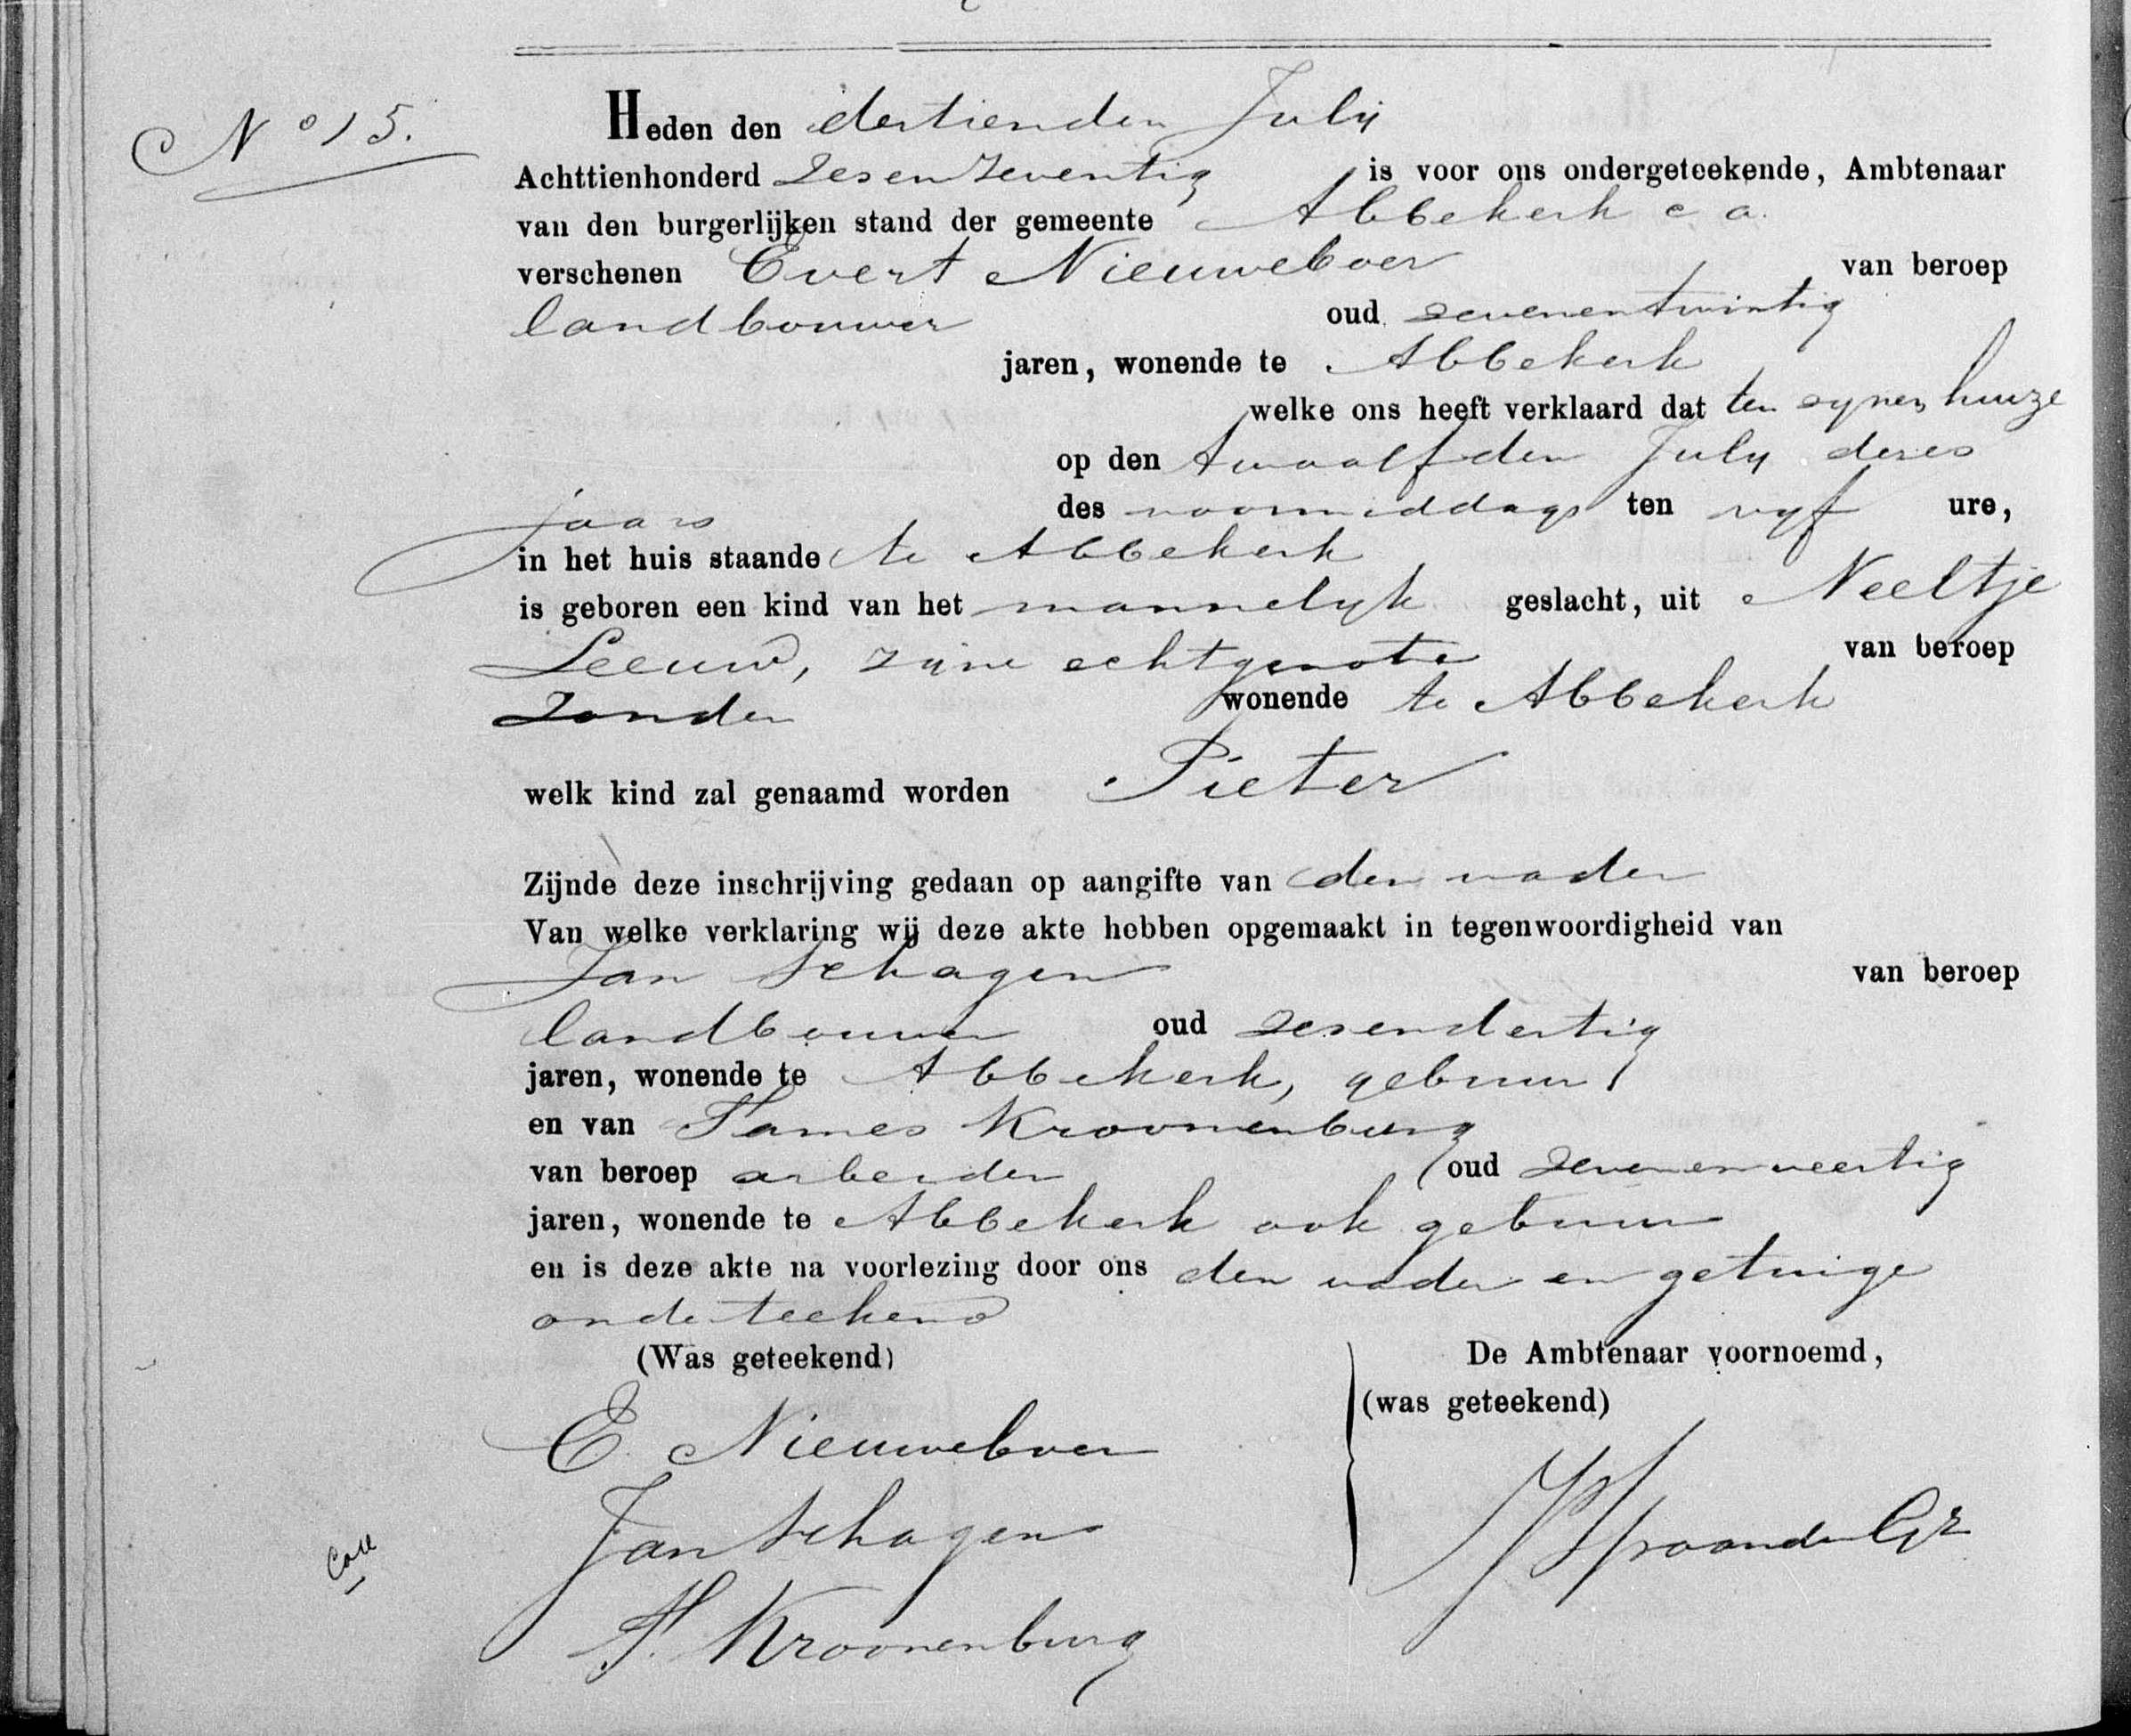 No 15.
Heden den dertienden July
Achttienhonderd Zesenzeventig is voor ons ondergeteekende, Ambtenaar
van den burgerlijken stand der gemeente Abbekerk c a.
verschenen Evert Nieuweboer van beroep
landbouwer oud zevenentwintig
jaren, wonende te Abbekerk
welke ons heeft verklaard dat ten zynen huize
op den twaalfden July dezes
jaars des voormiddags ten vyf ure,
in het huis staande te Abbekerk
is geboren een kind van het mannelyk geslacht, uit Neeltje
Leeuw, zijne echtgenote van beroep
Zonder wonende te Abbekerk
welk kind zal genaamd worden Pieter
Zijnde deze inschrijving gedaan op aangifte van den vader
Van welke verklaring wij deze akte hebben opgemaakt in tegenwoordigheid van
Jan Schagen van beroep
landbouwer oud zesendertig
jaren, wonende te Abbekerk, gebuur
en van Kroonenburg
van beroep arbeider oud zevenenveertig
jaren, wonende te Abbekerk ook gebuur
en is deze akte na voorlezing door ons den vader en getuige
onderteekend
(Was geteekend) De Ambtenaar voornoemd,
(was geteekend)
E. Nieuweboer
Jan Schagen
Kroonenburg